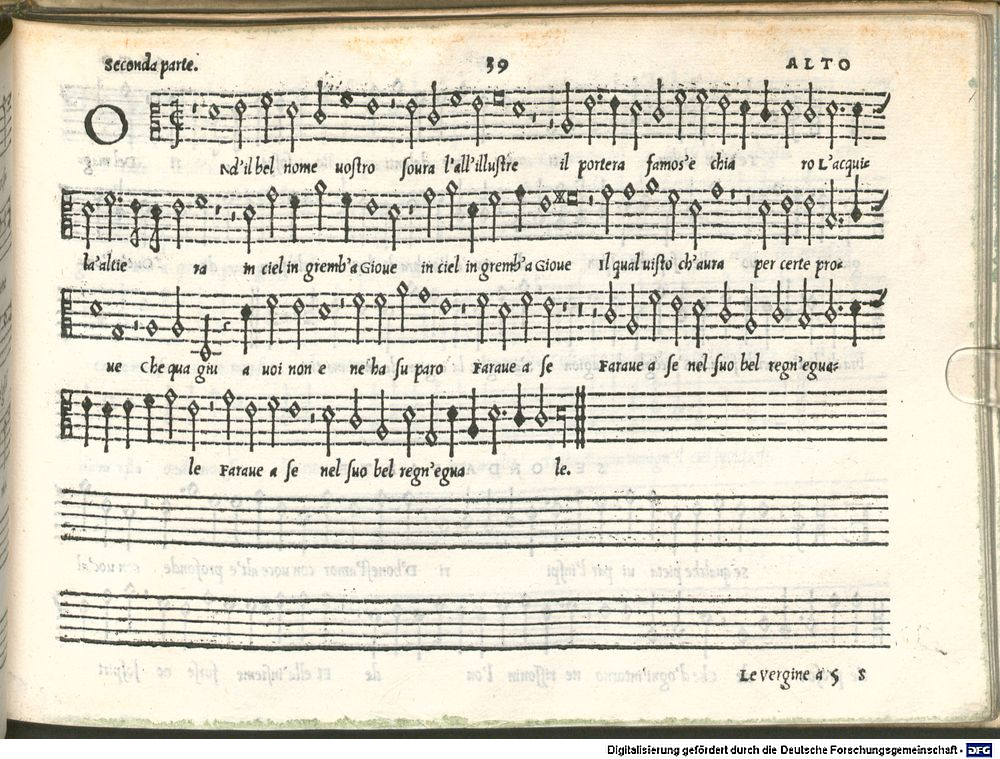 Seconda parte. 39 ALTO
O Nd'il bel nome uostro soura l'all'illustre il portera famos'e chia ro L'acqui-
la'altie ra in ciel in gremb'a Gioue in ciel in gremb'a Gioue Il qual uisto ch'aura per certe pro-
ue Che qua giu a uoi non ne'ha su paro Faraue a se Faraue a se nel suo bel regn'egua-
le Faraue a se nel suo bel regn'egua le.
Le vergine a 5 S
Digitalisierung gefördert durch die Deutsche Forschungsgemeinschaft - DFG